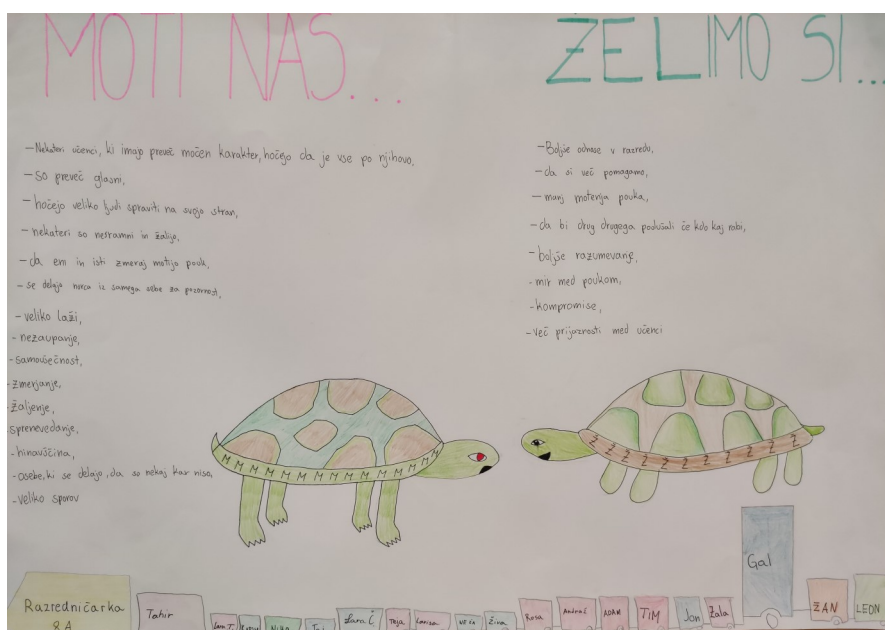 MOTI NAS...
-Nekateri učenci, ki imajo preveč močen karakter, hočejo da je vse po njihovo,
-so preveč glasni,
-hočejo veliko ljudi spraviti na svojo stran,
-nekateri so nesramni in žalijo,
-da em in isti zmeraj motijo pouk,
-se delajo norca iz samega sebe za pozornost,
-veliko laži,
-nezaupanje,
-samovšečnost,
-zmerjanje,
-žaljenje,
sprenevedanje,
-hinavščina,
-osebe, ki se delajo, da so nekaj kar niso,
-veliko sporov
ŽELIMO SI...
-Boljše odnose v razredu,
-da si več pomagamo,
-manj motenja pouka,
-da bi drug drugega poslušali če kdo kaj rabi,
-boljše razumevanje,
-mir med poukom,
-kompromise,
-več prijaznosti med učenci
M M M M M M M M M M M M M M
Ž Ž Ž Ž Ž Ž Ž Ž Ž Ž
Razredničarka
8.A
Tahir
Lara T.
Nika
Lara Č
Teja
Larisa
Živa
Rosa
Andraž
ADAM
TIM
Jon
Zala
Gal
ŽAN
LEON